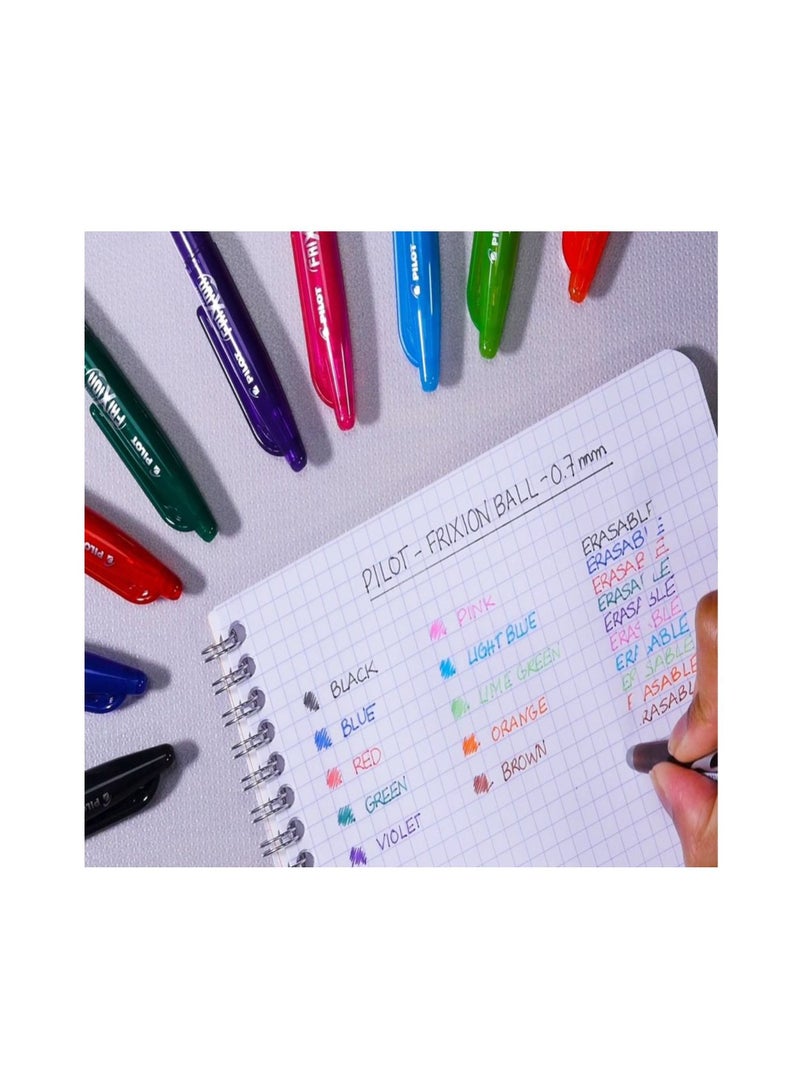 FRIXION PILOT
FRIXION PILOT
FRIX PILOT
PILOT
PILOT
PILOT
PILOT
PILOT - FRIXION BALL - 0.7 mm
BLACK
BLUE
RED
GREEN
VIOLET
PINK
LIGHT BLUE
LIME GREEN
ORANGE
BROWN
ERASABLE
ERASAB E
ERASAB E
ERASA LE
ERAS BLE
ERAS BLE
ER ABLE
E SABLE
ASABLE
RASABL